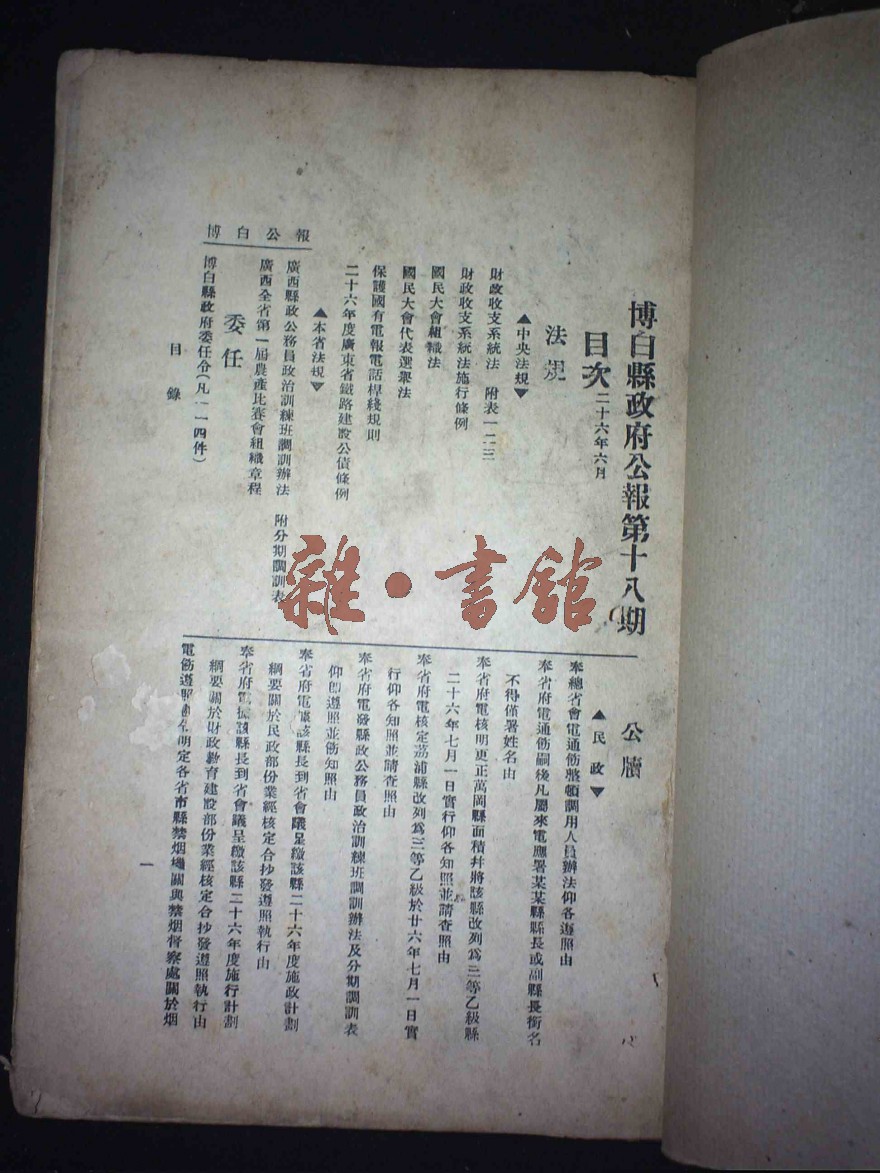 博白縣政府公報第十八期
目次 二十六年六月
法規
▲中央法規▼
財政收支系統法 附表一二三
財政收支系統法施行條例
國民大會組織法
國民大會代表選舉法
保護國有電報電話桿綫規則
二十六年度廣東省鐵路建設公債條例
▲本省法規▼
廣西縣政公務員政治訓練班調訓辦法 附分期調訓表
廣西全省第一屆農產比賽會組織章程
委任
博白縣政府委任令(凡一一四件)
公牘
▲民政▼
奉總省會電通飭整頓調用人員辦法仰各遵照由
奉省府電通飭嗣後凡屬來電應署某某縣縣長或副縣長銜名
不得僅署姓名由
奉省府電核明更正萬岡縣面積并將該縣改列爲三等乙級縣
二十六年七月一日實行仰各知照並請查照由
奉省府電核定荔浦縣改列爲三等乙級於廿六年七月一日實
行仰各知照並請查照由
奉省府電發縣政公務員政治訓練班調訓辦法及分期調訓表
仰即遵照並飭知照由
奉省府電據該縣長到省會議呈繳該縣二十六年度施政計劃
綱要關於民政部份業經核定合抄發遵照執行由
奉省府電據該縣長到省會議呈繳該縣二十六年度施行計劃
綱要關於財政教育建設部份業經核定合抄發遵照執行由
電飭遵照 明定各省市縣禁烟機關與禁烟督察處關於烟
博白公報
目錄
一
雜·書館